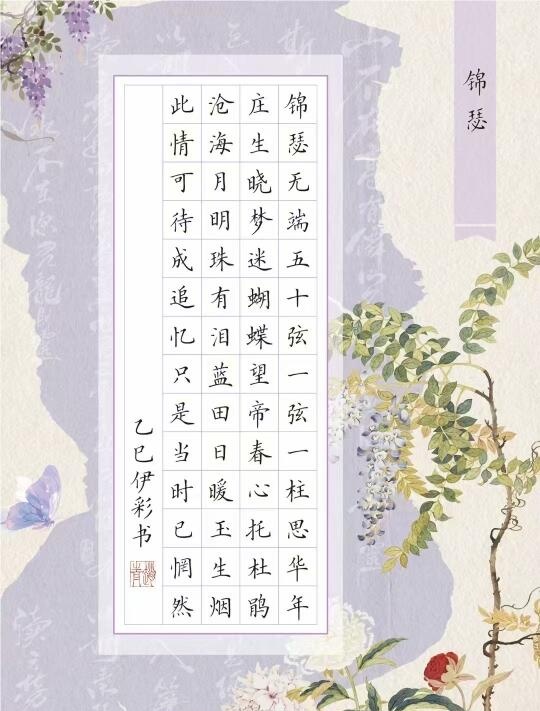 锦瑟
锦瑟无端五十弦一弦一柱思华年
庄生晓梦迷蝴蝶望帝春心托杜鹃
沧海月明珠有泪蓝田日暖玉生烟
此情可待成追忆只是当时已惘然
乙巳伊彩书